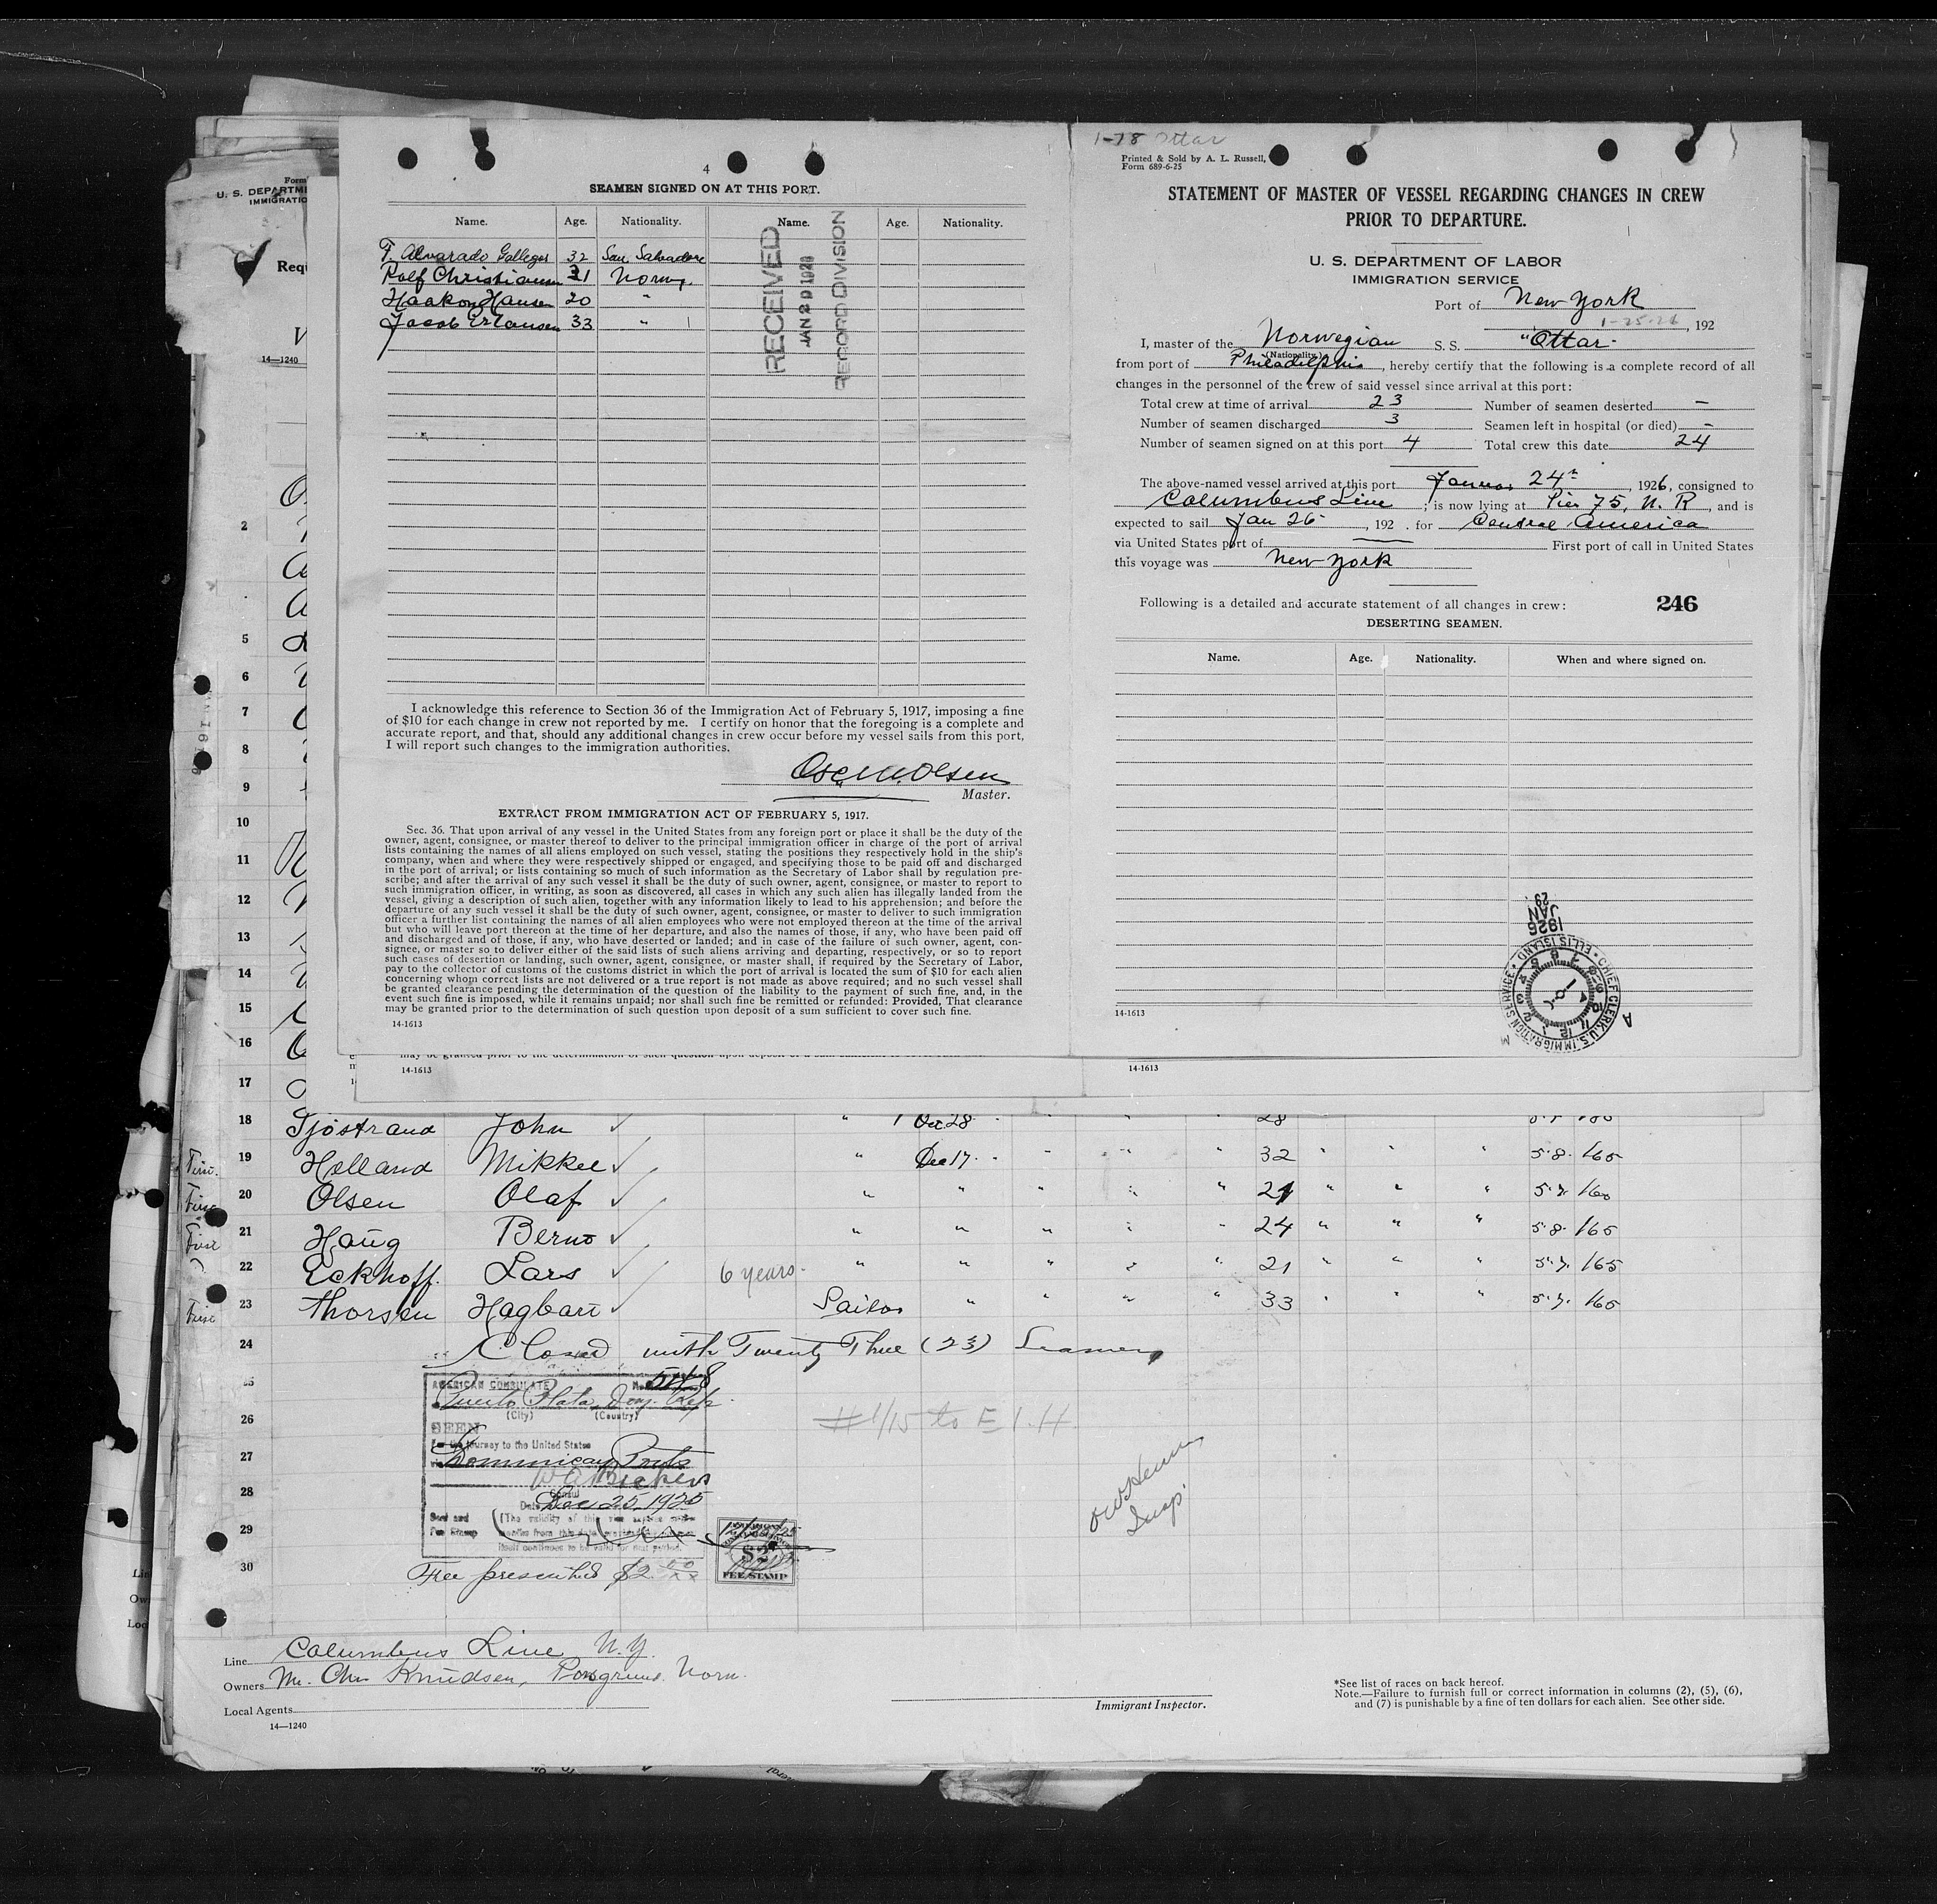 4
SEAMEN SIGNED ON AT THIS PORT.
Name. Age. Nationality. Name. Age. Nationality.
F. Alvarado Gallegos 32 San Salvadore
Rolf Christiansen 21 Norw.
Haakon Hansen 20 "
Jacob Erlansen 33 "
RECEIVED
JAN 29 1926
RECORD DIVISION
I acknowledge this reference to Section 36 of the Immigration Act of February 5, 1917, imposing a fine
of $10 for each change in crew not reported by me. I certify on honor that the foregoing is a complete and
accurate report, and that, should any additional changes in crew occur before my vessel sails from this port,
I will report such changes to the immigration authorities.
Osc. M. Olsen
Master.
EXTRACT FROM IMMIGRATION ACT OF FEBRUARY 5, 1917.
Sec. 36. That upon arrival of any vessel in the United States from any foreign port or place it shall be the duty of the
owner, agent, consignee, or master thereof to deliver to the principal immigration officer in charge of the port of arrival
lists containing the names of all aliens employed on such vessel, stating the positions they respectively hold in the ship's
company, when and where they were respectively shipped or engaged, and specifying those to be paid off and discharged
in the port of arrival; or lists containing so much of such information as the Secretary of Labor shall by regulation pre-
scribe; and after the arrival of any such vessel it shall be the duty of such owner, agent, consignee, or master to report to
such immigration officer, in writing, as soon as discovered, all cases in which any such alien has illegally landed from the
vessel, giving a description of such alien, together with any information likely to lead to his apprehension; and before the
departure of any such vessel it shall be the duty of such owner, agent, consignee, or master to deliver to such immigration
officer a further list containing the names of all alien employees who were not employed thereon at the time of the arrival
but who will leave port thereon at the time of her departure, and also the names of those, if any, who have been paid off
and discharged and of those, if any, who have deserted or landed; and in case of the failure of such owner, agent, con-
signee, or master so to deliver either of the said lists of such aliens arriving and departing, respectively, or so to report
such cases of desertion or landing, such owner, agent, consignee, or master shall, if required by the Secretary of Labor,
pay to the collector of customs of the customs district in which the port of arrival is located the sum of $10 for each alien
concerning whom correct lists are not delivered or a true report is not made as above required; and no such vessel shall
be granted clearance pending the determination of the question of the liability to the payment of such fine, and, in the
event such fine is imposed, while it remains unpaid; nor shall such fine be remitted or refunded: Provided, That clearance
may be granted prior to the determination of such question upon deposit of a sum sufficient to cover such fine.
14-1613
1-78 Ottar
Printed & Sold by A. L. Russell,
Form 689-6-25
STATEMENT OF MASTER OF VESSEL REGARDING CHANGES IN CREW
PRIOR TO DEPARTURE.
U. S. DEPARTMENT OF LABOR
IMMIGRATION SERVICE
Port of New York
1-25-26, 192
I, master of the Norwegian S. S. "Ottar"
(Nationality)
from port of Philadelphia, hereby certify that the following is a complete record of all
changes in the personnel of the crew of said vessel since arrival at this port:
Total crew at time of arrival 23 Number of seamen deserted —
Number of seamen discharged 3 Seamen left in hospital (or died) -
Number of seamen signed on at this port 4 Total crew this date 24
The above-named vessel arrived at this port 24th, 1926, consigned to
Columbus Line; is now lying at Pier 75, N. R, and is
expected to sail Jan 26, 192 . for Central America
via United States port of — First port of call in United States
this voyage was New York
Following is a detailed and accurate statement of all changes in crew: 246
DESERTING SEAMEN.
Name. Age. Nationality. When and where signed on.
14-1613
1926 JAN 29
CHIEF CLERK, U.S. IMMIGRATION SERVICE • ELLIS ISLAND
14-1613
14-1613
Form
U. S. DEPARTM
IMMIGRATIO
Requ
14—1240
2
5
6
7
8
9
10
11
12
13
14
15
16
17
18 Tjöstrand John ✓ " Dec 28 " " " 28
19 Holland Mikkel ✓ " Dec 17 " " " 32 " " " 5.8. 165
20 Olsen Olaf ✓ " " " " " 21 " " " 5.7. 160
21 Haug Bernt ✓ " " " " " 24 " " " 5.8. 165
22 Eckhoff. Lars ✓ 6 years. " " " " " 21 " " " 5.7. 165
23 Thorsen Hagbart ✓ Sailor " " " " 33 " " " 5.7. 165
24 Closed with Twenty Three (23) Seamen
25
26
27
28
29
30
AMERICAN CONSULATE
Puerto Plata, Dom. Rep.
(City) (Country)
SEEN
For the journey to the United States
Dominican Ports
Consul
Date Dec 25, 1925
$2
FEE STAMP
Fee prescribed $2.50
#1/15 to E I. H
Insp.
Line Columbus Line N.Y.
Owners Mr. Chr. Knudsen, Porsgrund. Norw.
Local Agents
14—1240
Immigrant Inspector.
*See list of races on back hereof.
Note.—Failure to furnish full or correct information in columns (2), (5), (6),
and (7) is punishable by a fine of ten dollars for each alien. See other side.